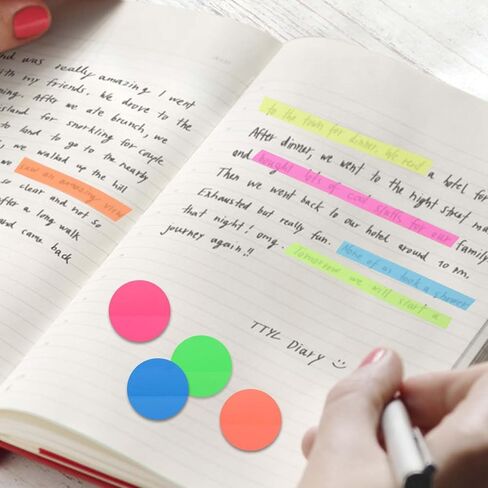 and was really amazing I went
with my friends. We drove to the
ning. After we ate brunch, we
island for snorkling for couple
to land to go to the nearby
we walked up the hill
saw an amazing view
so clear and not so
after a long walk
and came back
to the town for dinner. We rent a hotel for
After dinner, we went to the night street ma
and bought lots of cool stuffs for our family
Then we went back to our hotel around 10 pm.
Exhausted but really fun. None of us took a shower
that night! omg. Tomorrow we will start a
journey again!!
TTYL Diary